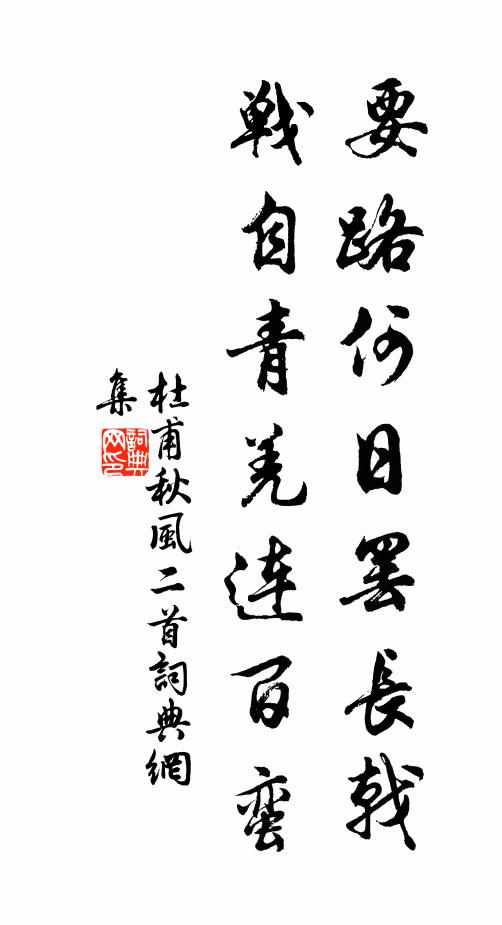 要路何日罢長戟
戦自青羌連百蛮
杜甫秋風二首詞典網
集
詞典网印